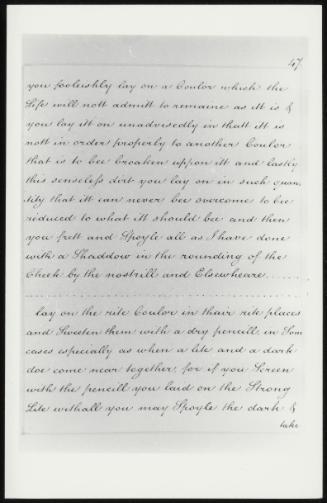 47
you fooleishly lay on a Coulor which the
Life will nott admitt to remaine as itt is &
you lay itt on unadvisedly in thatt itt is
nott in order properly to another Coulor
that is to bee broaken uppon itt and lastly
this senseless dirt you lay on in such quan,
tity that itt can never bee overcome to bee
riduced to what itt should bee and then
you frett and Spoyle all as I have done
with a Shaddow in the rounding of the
Cheek by the nostrill and Elsewheare......
Lay on the rite Coulor in thair rite places
and Sweeten them with a dry pencill in Som
cases especially as when a lite and a dark
doe come near together, for if you Screen
with the pencill you laid on the Strong
Lite withall you may Spoyle the dark &
take